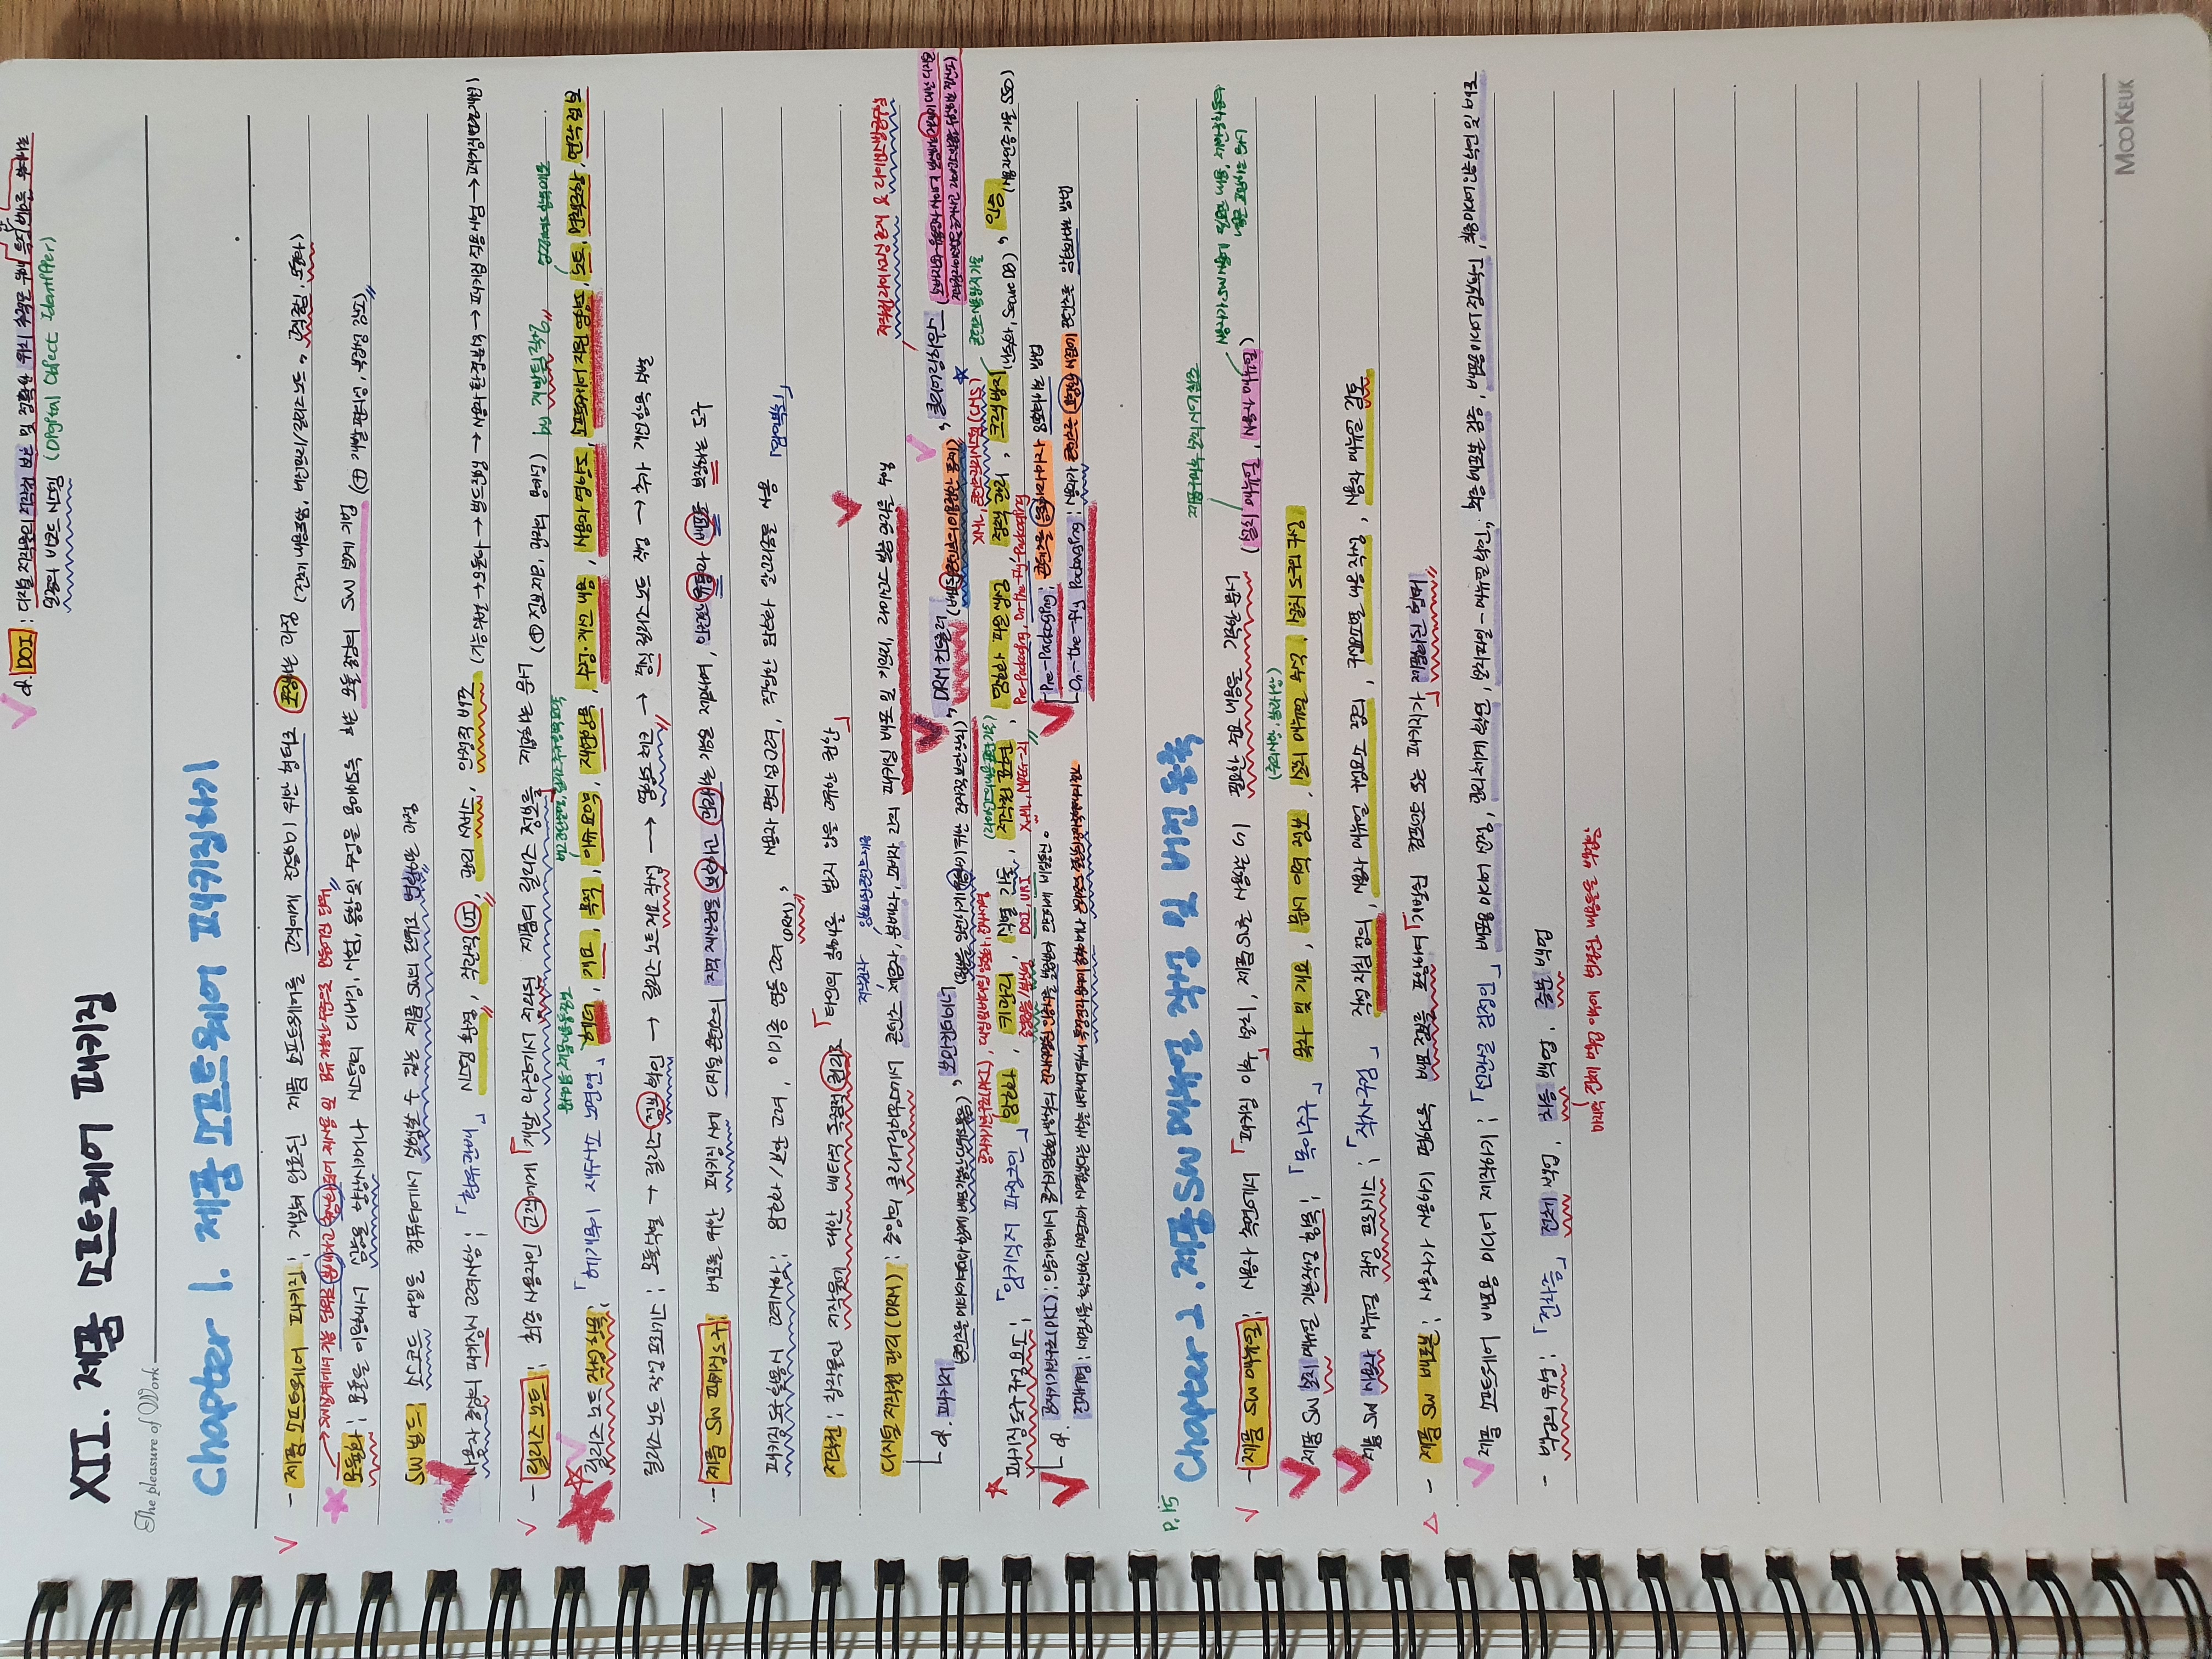 cf. DOI : 디지털 저작물의 저작권 보호 및 정확한 위치 추적을 위해 특정 번호를 부여하는
일종의 바코드 시스템 (Digital Object Identifier)
XII. 제품 소프트웨어 패키징
The pleasure of Work
Chapter 1. 제품 소프트웨어 패키징하기
- 제품 소프트웨어 패키징 : 개발이 완료된 제품 소프트웨어를 고객에게 전달하기 위한 형태로 포장하는 과정 (전체 내용포함, 버전관리/릴리즈노트, 고객중심, 모듈화)
→ SW설계에서 기능 단위로 분해하고 추상화되어 재사용 및 공유 가능한 수준으로 만들어진 단위
모듈화 : 모듈을 이용해서 성능을 향상시키거나 시스템의 디버깅, 시험, 통합 및 수정을 용이하도록 하는 모듈 중심의 SW 설계 기법 (⊕ 개발 편의성, 복잡성 감소)
SW 빌드 : 소스코드 파일을 컴퓨터에서 실행할 수 있는 제품 SW의 단위로 변환하는 과정
사용자 중심의 패키징시 고려사항 : 「환유관배」 시스템 환경, 직관적 UI, 관리 서비스, 안정적 배포 (기능식별 → 모듈화 → 빌드진행 → 사용자 환경분석 → 패키징 적용시험 → 패키징 변경개선)
- 릴리즈 노트 : 최종 사용자인 고객에게 「개발 과정에서 정리된 제품의 릴리즈 정보를」 제공하는 문서 (⊕ 정보제공, 관리의 용이성) by 개발팀 작성
릴리즈 노트 작성 항목 : 「헤개목이 재수사소 노면연」 헤더, 개요, 목적, 이슈요약, 재현항목, 수정·개선 내용, 사용자 영향도, 소프트웨어 지원 영향도, 노트, 면책조항, 연락 정보
릴리즈 노트 작성 프로세스 : 모듈식별 → 릴리즈 정보 확인 → 릴리즈 노트 개요 작성 → 영향도 체크 → 정식 릴리즈 노트 작성 → 추가 개선항목 식별
- 제품 SW 패키징 도구 : 배포를 위한 패키징 시에 디지털 콘텐츠의 지적 재산권을 보호하고 관리하는 기능을 제공하며, 안전한 유통과 배포를 보장하는 도구
패키징 도구 활용시 고려사항 : 암호화/보안 고려, 이기종 연동 고려 (DRM), 사용자 편의성 고려, 적합한 암호화 알고리즘을 사용
저작권 : 창작물인 저작물에 대한 배타적 독점적 권리로 「타인의 침해를 받지 않을 고유한 권한」
저작권자 암호화된 콘텐츠 제공
디지털 저작권 관리 (DRM) : 중앙의 클리어링하우스에서 콘텐츠 제공자, 분배자, 소비자 간의 패키징 배포 및 키관리, 라이선스 발급 관리를 수행
저작권 라이선싱 중개 & 라이선스 발급수행
cf. 패키저 (콘텐츠를 메타데이터와 함께 배포가능한 단위로 묶음), 보안컨테이너 (원본을 안전하게 유통하기 위한 전자적 보안장치), DRM 컨트롤러 (배포된 콘텐츠의 이용권한 통제), 클리어링하우스
공개키기반구조(PKI), 대칭 및 비대칭 암호화, 전자서명
(라이선스의 내용 표현 기술)
XML, 콘텐츠관리시스템(CMS)
콘텐츠 사용방지 기술
패키징 도구 구성 요소 : 「암키식저 파정크인」 암호화, 키관리, 식별 기술, 저작권 표현, 암호화 파일 생성, 정책 관리, 크랙 방지 (난독화, Secure DB), 인증 (사용자인증 기술 SSO)
DOI, URI
XML, MPEG-21
Pre-Packaging, On-the-Fly-Packaging
cf. 공개키기반구조(PKI) : 인증기관에서 공개키암호화방식의 전자서명된 인증서를 발급받아
Pre-Packaging : 콘텐츠를 등록하자마자 암호화하는 방법
전자서명 : 서명자를 확인하고 서명자가 서명했다는 사실을 나타내기 위해 특정전자문서에 첨부되거나 논리적으로 결합된 전자적형태의 정보
On-the-fly Packaging : 사용자가 콘텐츠를 요청한 시점에 콘텐츠를 암호화하는 방법
P.15
Chapter 2. 제품SW 매뉴얼 작성 및 버전 등록
제품구매후 설치 시에 참조
- 제품 SW 매뉴얼 : 사용자 측면에서 「패키징 이후」 설치, 제품 SW를 사용하는 데 필요한 주요 내용을 기록한 문서 (설치 매뉴얼, 사용자 매뉴얼)
(주의사항, 참고사항)
제품 SW 설치 매뉴얼 기본작성 항목 : 「목이주구」 목차 및 개요, 문서 이력 정보, 설치 매뉴얼 주석, 설치 도구의 구성
제품 SW 사용자 매뉴얼 작성 프로세스 : 「작사구검」 작성 지침 정의, 사용자 매뉴얼 구성요소 정의, 구성요소별 내용 작성, 사용자 매뉴얼 검토
△ - 제품 SW 배포본 : 사용자가 사용하기 편하도록 배포 정보를 포함하여 「개발된 컴포넌트 또는 패키지가」 제품화된 형태
제품 소프트웨어 배포용 미디어 제작하기 : 「선관설 검정인」 배포용 미디어 선정, 관리체계 확인, 설치파일-매뉴얼 확인, 최종 배포본 검증, 배포용 미디어 정보확인, 최종 미디어 인증확인 및 배포
- 백업의 유형 : 「전차증」 전체 백업, 차등 백업, 증분 백업
마지막 전체 백업 이후에 변경된 내용들을 백업함
MOOKEUK